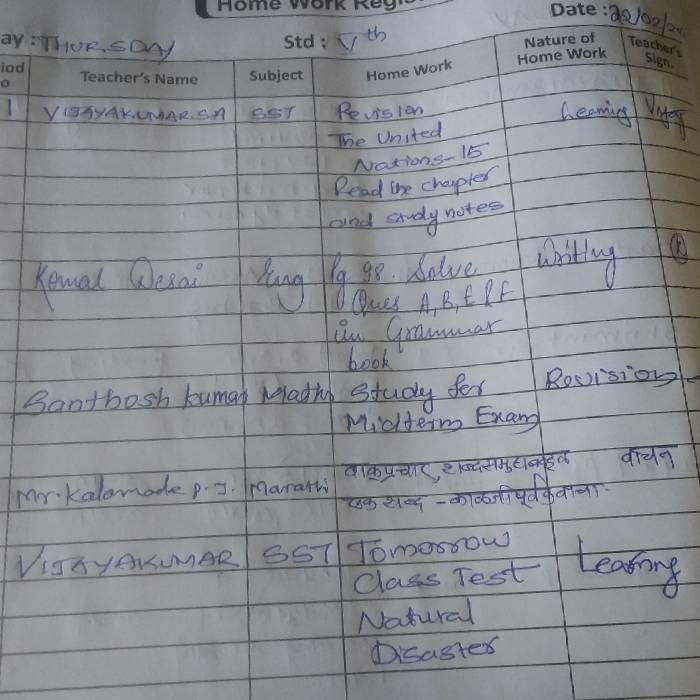 Home Work Regis
Date : 22/02/2
ay : THURSDAY Std : Vth
iod
o
Teacher's Name Subject Home Work Nature of Home Work Teacher's Sign.
1 VIJAYAKUMAR.SA SST Revision Learning Vijay
The United
Nations-15
Read the chapter
and study notes
Komal Desai Eng Pg 98. Solve Writing
Ques A, B, E & F
in Grammar
book
Santhosh kumar Maths Study for Revision
Midterm Exam
Mr. Kalamade P. J. Marathi वाकप्रचार, शब्दसमूहाबद्दल वाचन
एक शब्द - काळजीपूर्वक वाचा.
VIJAYAKUMAR SST Tomorrow Learning
Class Test
Natural
Disaster